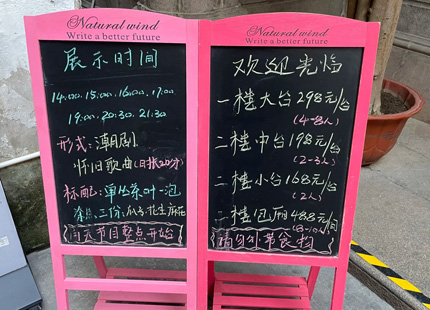 Natural wind
Write a better future
展示时间
14:00.15:00.16:00.17:00
19:00.20:30.21:30
形式:潮剧
怀旧歌曲
标配:单丛茶叶一泡
茶点三份:瓜子花生麻花
整点开始
Natural wind
Write a better future
欢迎光临
一楼大台298元/台
(4-8人)
二楼中台198元/台
(2-3人)
二楼小台168元/台
(2人)
二楼包厢488元/间
(8-10人)
请勿外带食物